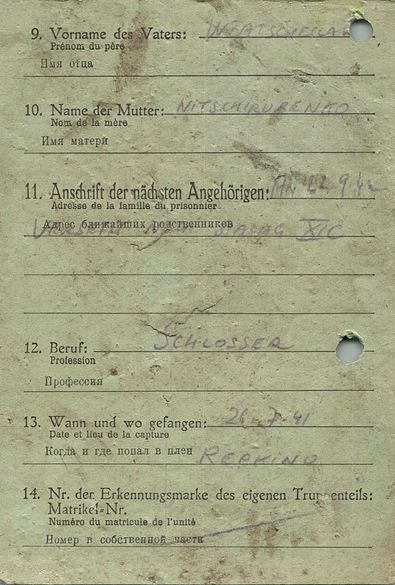 9. Vorname des Vaters:
Prénom du père
Имя отца
10. Name der Mutter: NITSCHIRUBENKO
Nom de la mère
Имя матери
11. Anschrift der nächsten Angehörigen:
Adresse de la famille du prisonnier
Адрес ближайших родственников
STALAG XIC
12. Beruf: SCHLOSSER
Profession
Профессия
13. Wann und wo gefangen: 26.7.41
Date et lieu de la capture
Когда и где попал в плен REPKINO
14. Nr. der Erkennungsmarke des eigenen Truppenteils:
Matrikel-Nr.
Numéro du matricule de l'unité
Номер в собственной части